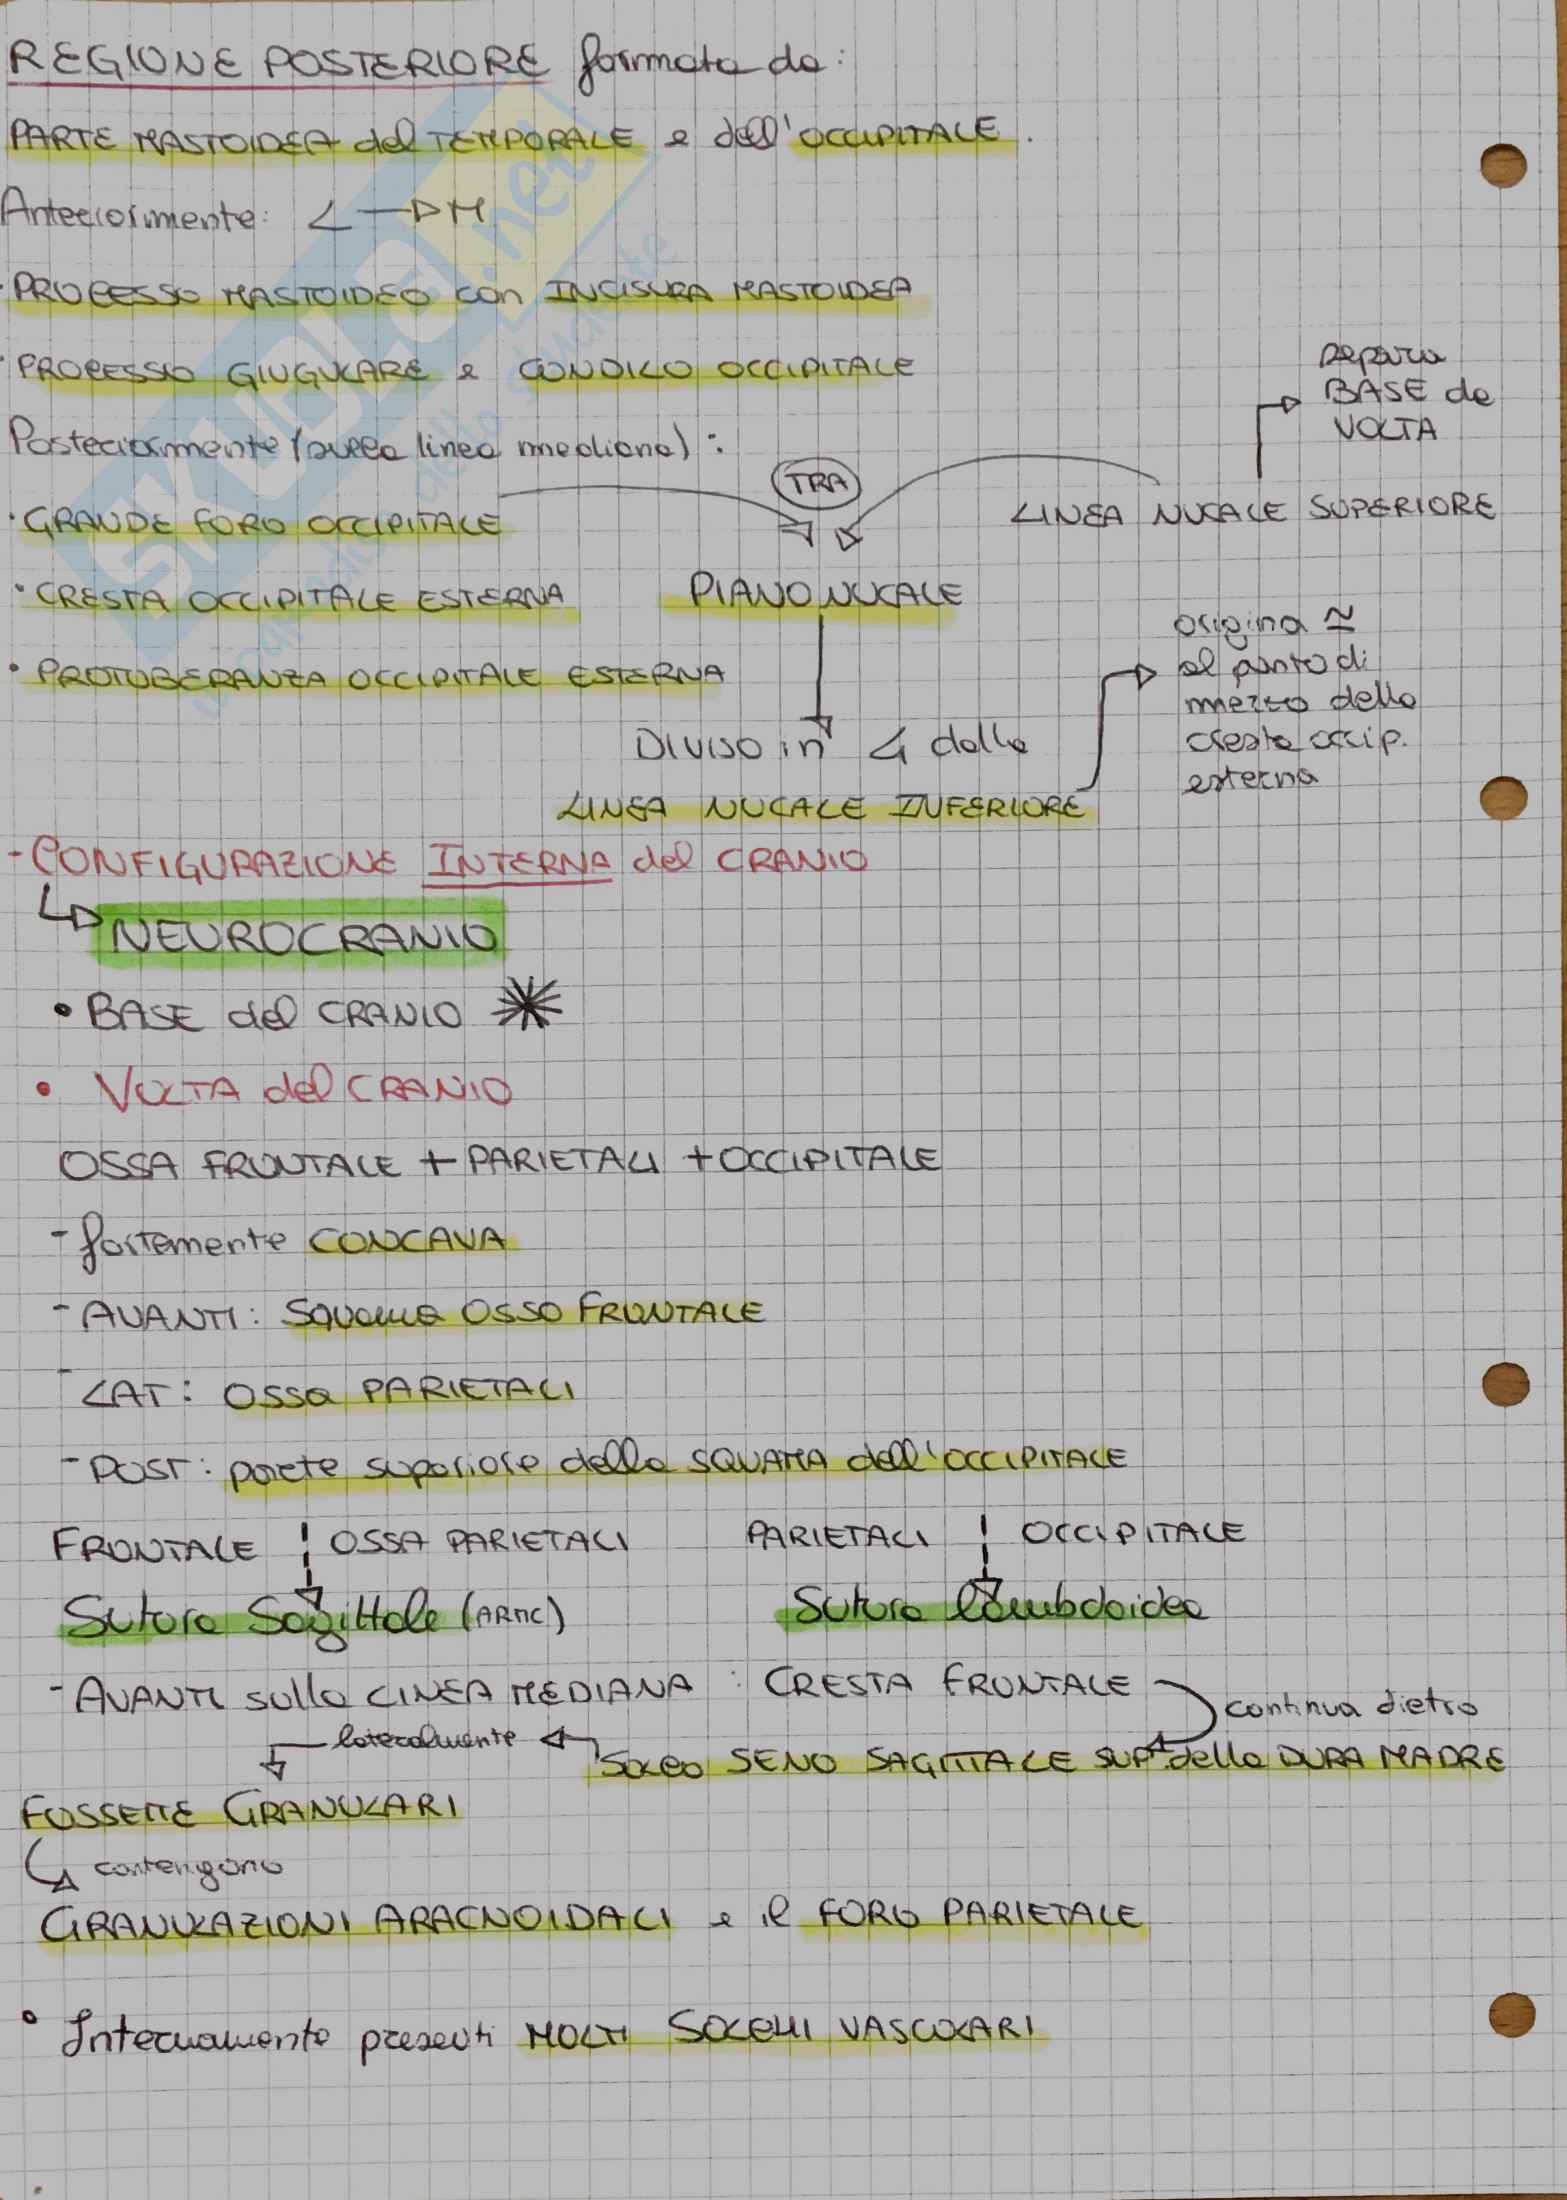 REGIONE POSTERIORE formata da:
PARTE MASTOIDEA del TEMPORALE e dell'OCCIPITALE.
Anteriormente: L → M
· PROCESSO MASTOIDEO con INCISURA MASTOIDEA
· PROCESSO GIUGULARE e CONDILO OCCIPITALE
separa
BASE da
VOLTA
Posteriormente (sulla linea mediana):
TRA
· GRANDE FORO OCCIPITALE
LINEA NUCALE SUPERIORE
· CRESTA OCCIPITALE ESTERNA
PIANO NUCALE
· PROTUBERANZA OCCIPITALE ESTERNA
origina ≃
al punto di
mezzo della
cresta occip.
esterna
DIVISO in dalla
LINEA NUCALE INFERIORE
- CONFIGURAZIONE INTERNA del CRANIO
NEUROCRANIO
• BASE del CRANIO *
• VOLTA del CRANIO
OSSA FRONTALE + PARIETALI + OCCIPITALE
- fortemente CONCAVA
- AVANTI: Squama OSSO FRONTALE
- LAT: Ossa PARIETALI
- POST: parete superiore della SQUAMA dell'OCCIPITALE
FRONTALE ¦ OSSA PARIETALI
PARIETALI ¦ OCCIPITALE
Sutura Sagittale
Sutura lambdoidea
- AVANTI sulla LINEA MEDIANA : CRESTA FRONTALE
continua dietro
lateralmente
Solco SENO SAGITTALE SUP. della DURA MADRE
FOSSETTE GRANULARI
contengono
GRANULAZIONI ARACNOIDALI e il FORO PARIETALE
• Internamente presenti MOLTI SOLCHI VASCOLARI
SKUOLA.net